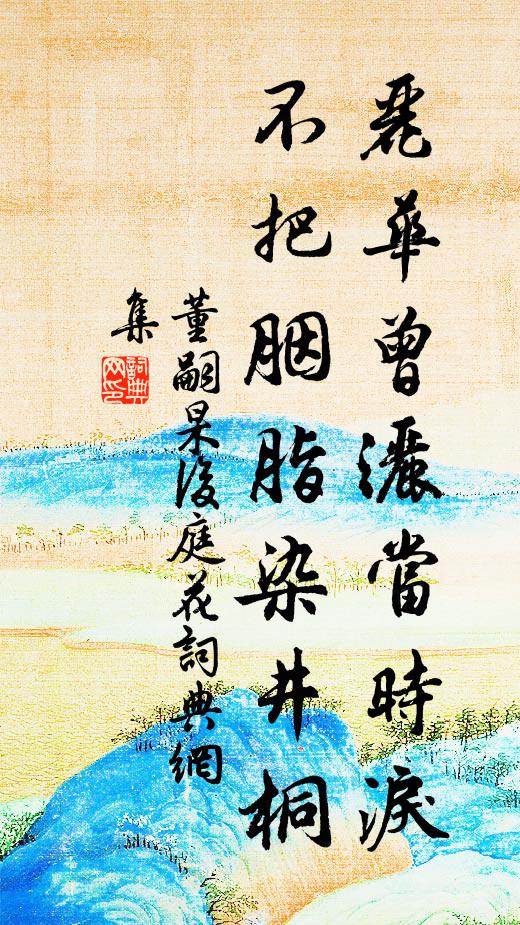 麗華曾灑當時淚
不把胭脂染井桐
董嗣杲後庭花詞典網
集
詞典網印